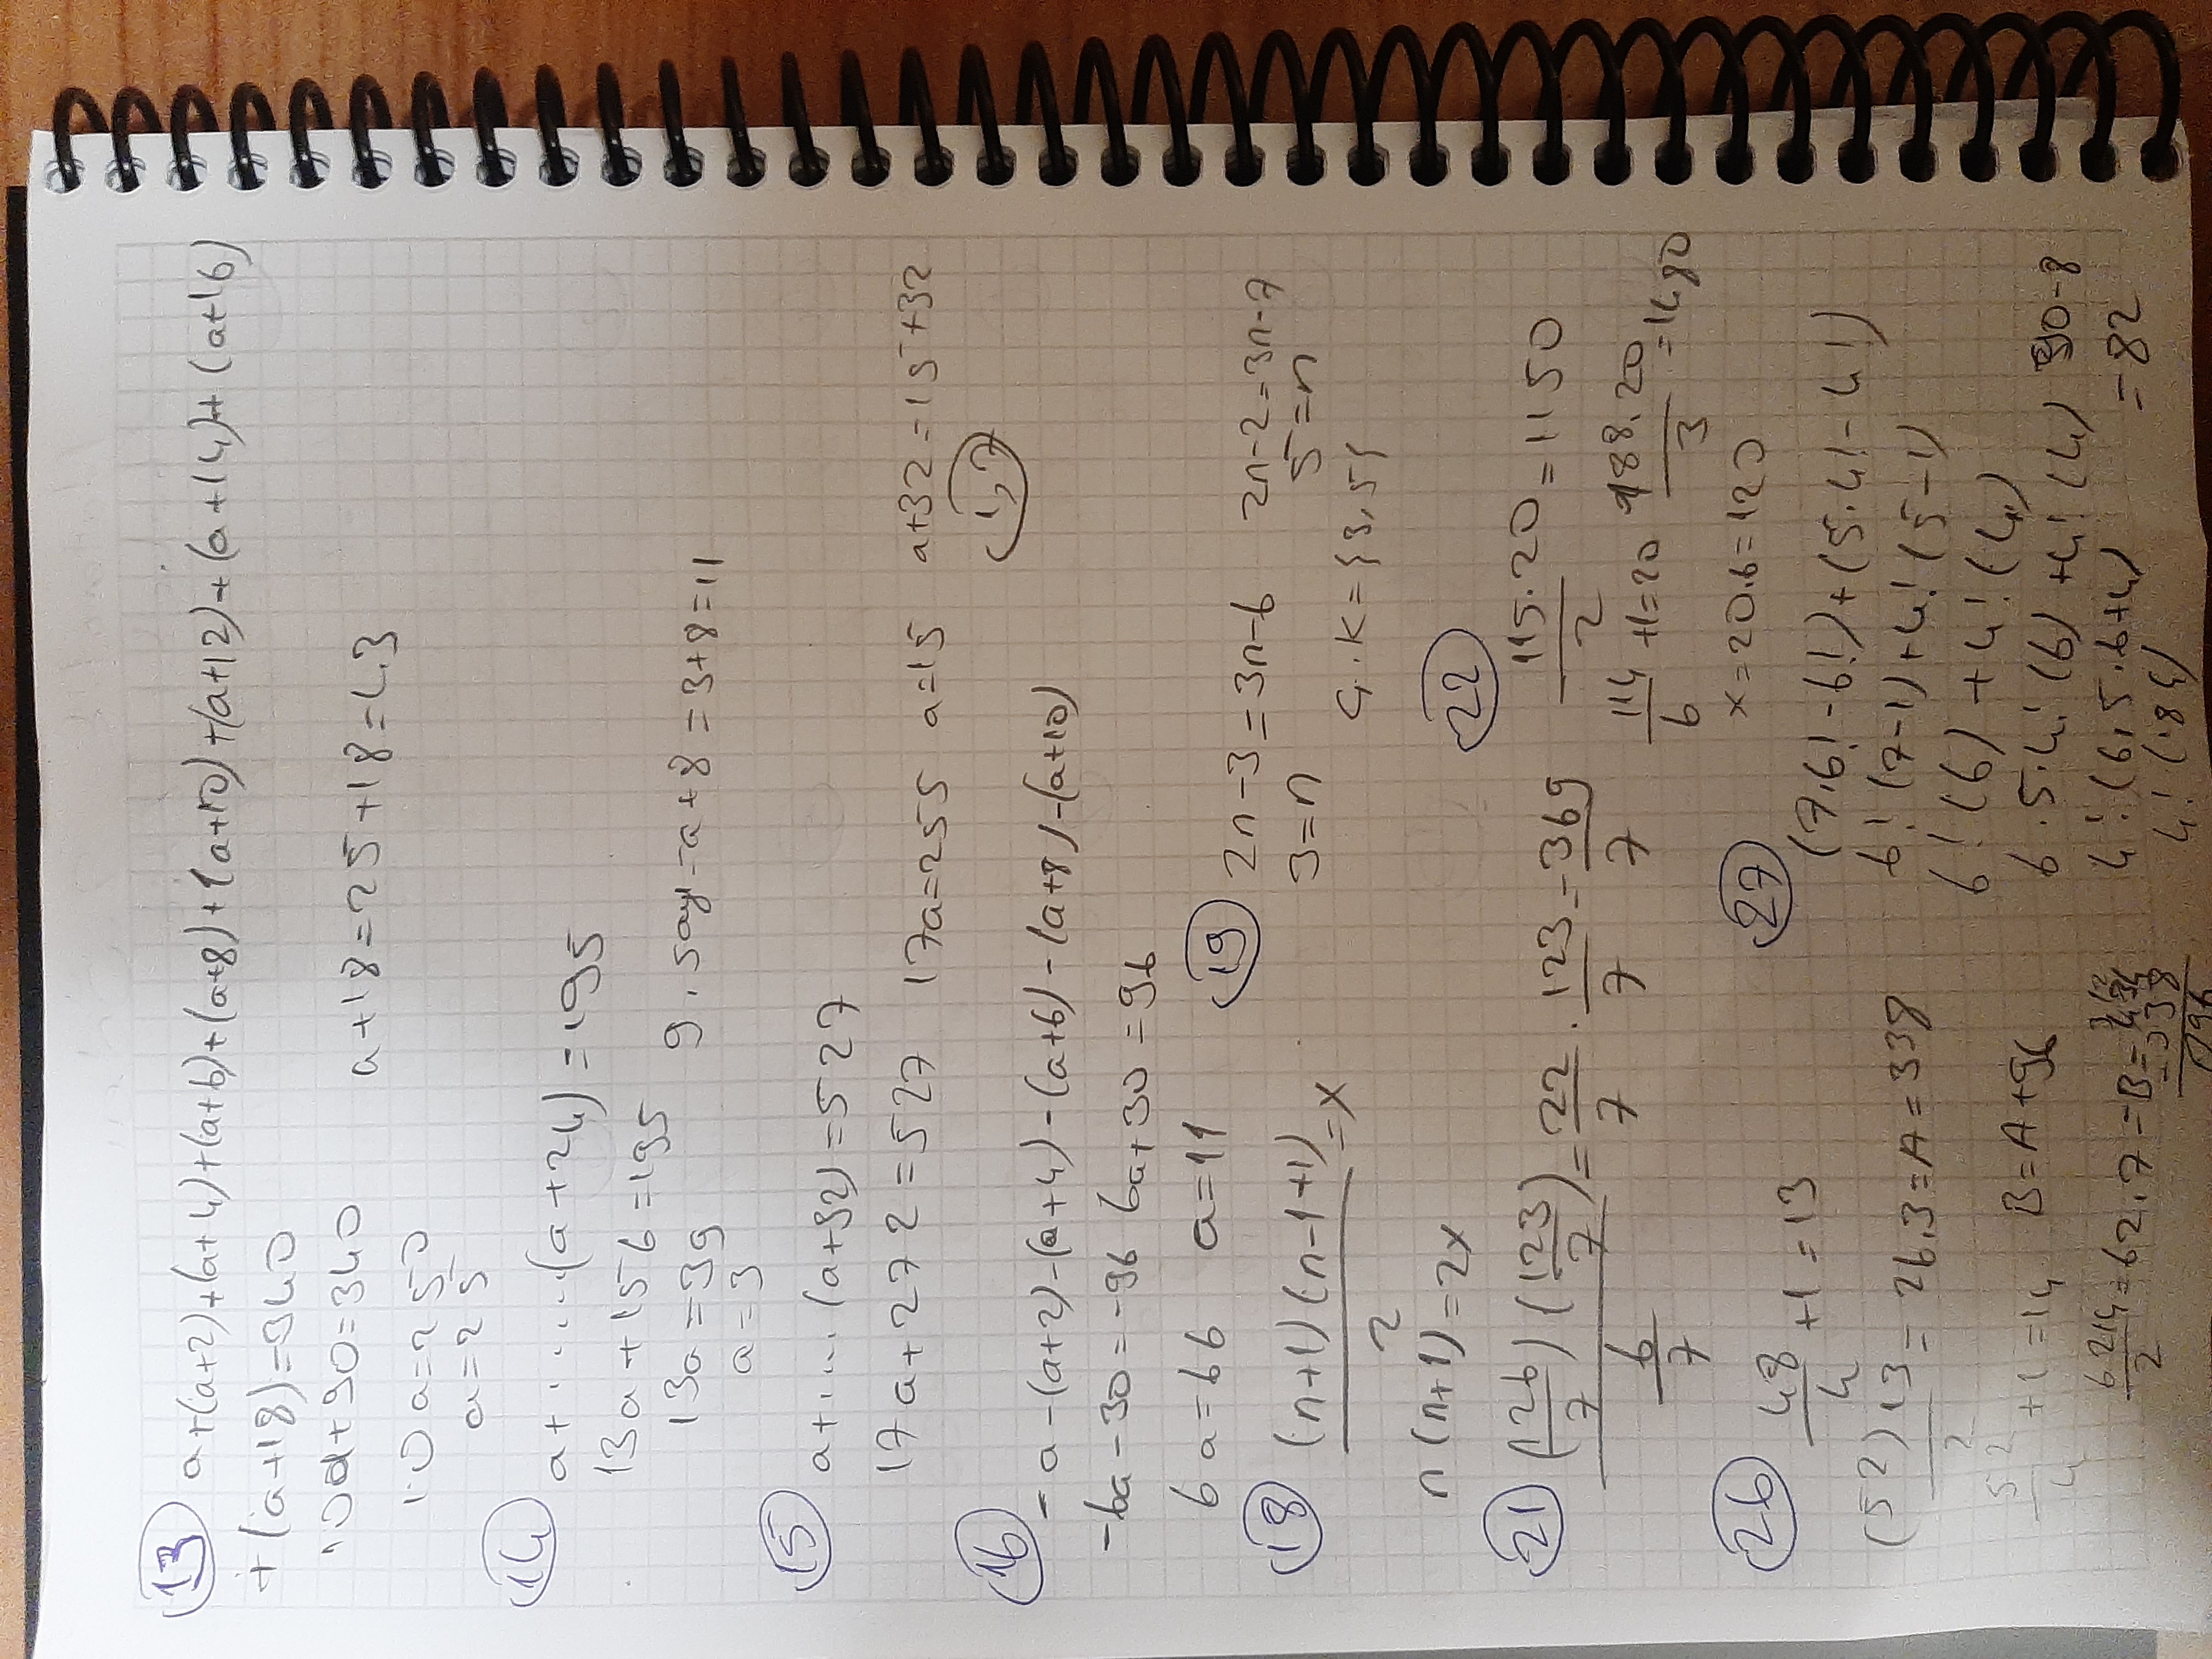 13 a+(a+2)+(a+4)+(a+6)+(a+8)+(a+10)+(a+12)+(a+14)+(a+16)
+(a+18)=340
10a+90=340
a+18=25+18=43
10a=250
a=25
14
a+......(a+24)=195
13a+156=195
13a=39
9. sayı=a+8=3+8=11
a=3
15
a+.... (a+32)=527
17a+272=527 17a=255 a=15 a+32=15+32
47
16
-a-(a+2)-(a+4)-(a+6)-(a+8)-(a+10)
-6a-30=-96 6a+30=96
6a=66 a=11
18 (n+1)(n-1+1)/2=x
n(n+1)=2x
19 2n-3=3n-6 2n-2=3n-7
3=n 5=n
Ç.K={3,5}
21 (126/7)(123/7)/(6/7)=22/7·123/7=369/7
22
115·20/2=1150
114/6+1=20 188·20/3=1480
x=20·6=120
26
48/4+1=13
(52)13/2=26·3=A=338
52/4+1=14 B=A+96
6214/2=62·7=B=434
-338
096
27
(7·6!-6!)+(5·4!-4!)
6!(7-1)+4!(5-1)
6!(6)+4!(4)
6·5·4!(6)+4!(4) 90-8
4!(6·5·6+4) =82
4!(184)